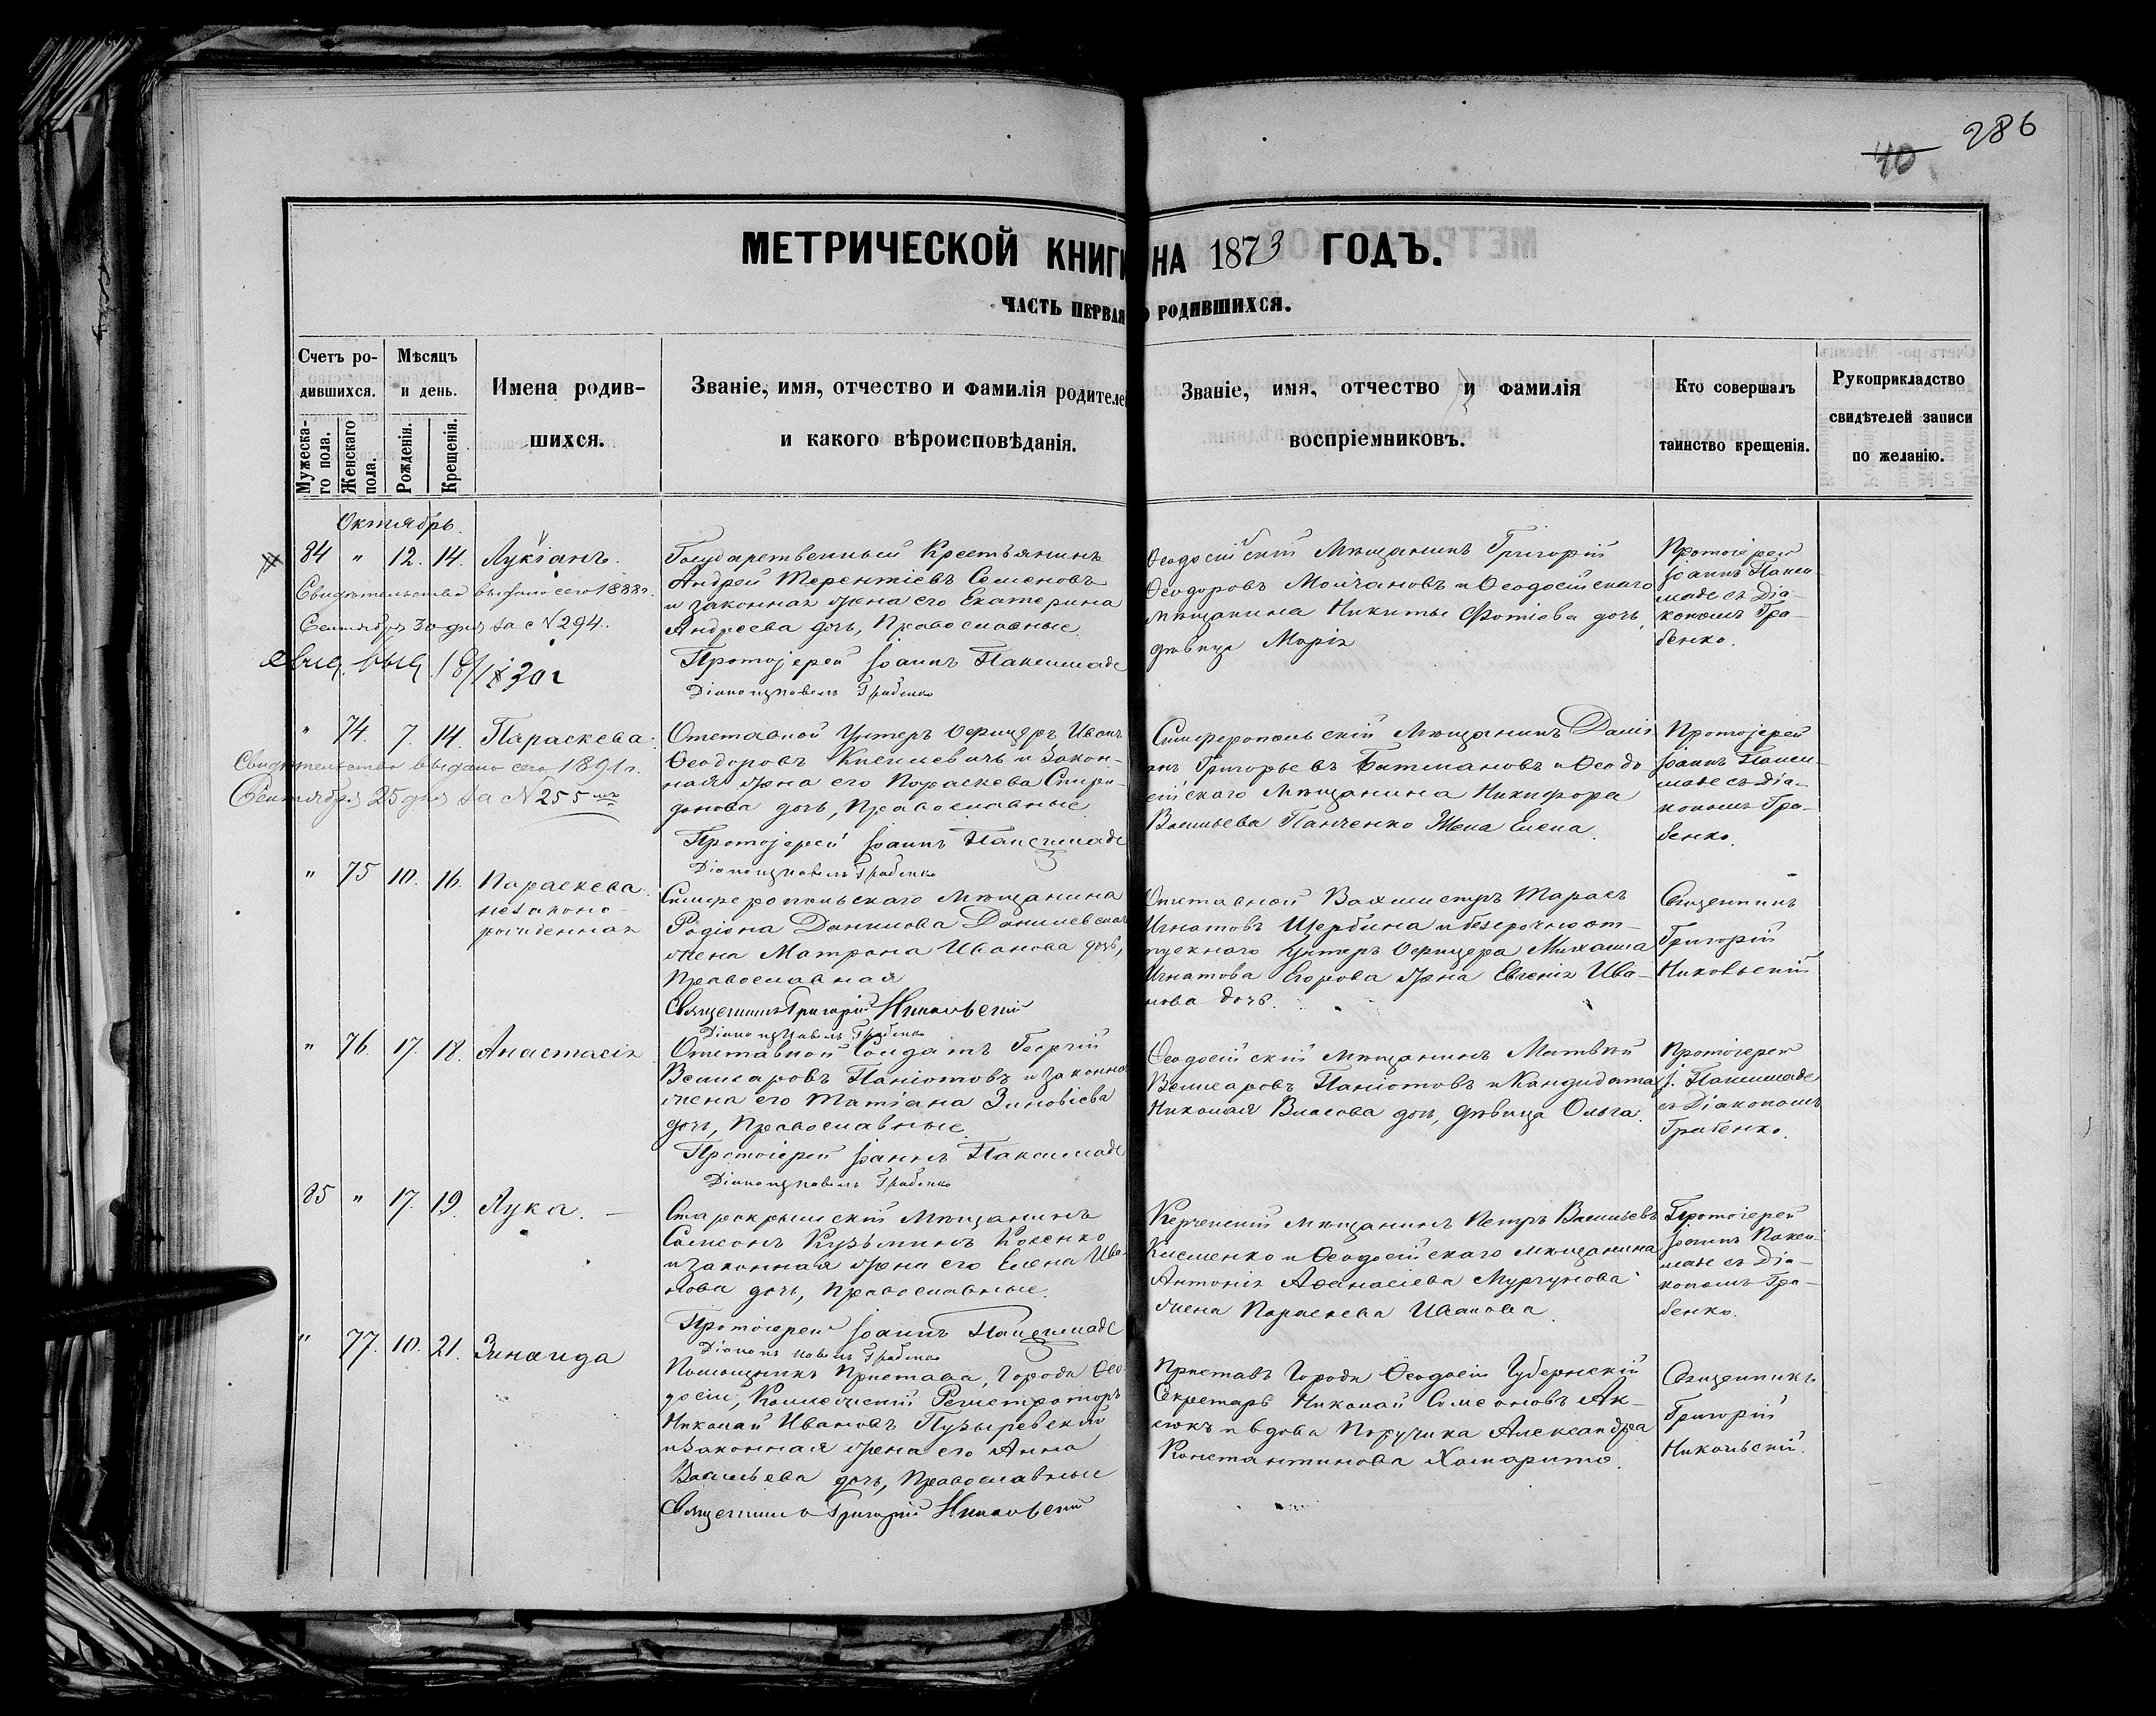 286
40
МЕТРИЧЕСКОЙ КНИГИ НА 1873 ГОДЪ.
ЧАСТЬ ПЕРВАЯ О РОДИВШИХСЯ.
Счетъ ро-
дившихся.
Мужеска-
го пола.
Женскаго
пола.
Мѣсяцъ
и день.
Рожденія.
Крещенія.
Имена родив-
шихся.
Званіе, имя, отчество и фамилія родителей
и какого вѣроисповѣданія.
Званіе, имя, отчество и фамилія
воспріемниковъ.
Кто совершалъ
таинство крещенія.
Рукоприкладство
свидѣтелей записи
по желанію.
Октябрь.
84 " 12. 14. Лукіанъ.
Свидѣтельство выдано сего 1888 г.
Сентября 30 дня за № 294.
Государственный Крестьянинъ
Андрей Терентіевъ Семеновъ
и законная жена его Екатерина
Андреева дочь, Православные.
Протоіерей Іоаннъ Паксимаде
Діаконъ Павелъ Грабенко
Ѳеодосійскій Мѣщанинъ Григорій
Ѳеодоровъ Молчановъ и Ѳеодосійскаго
мѣщанина Никиты Фотіева дочь,
дѣвица Марія
Протоіерей
Іоаннъ Пакси-
маде съ Діа-
кономъ Гра-
бенко.
" 74. 7. 14. Параскева.
Свидѣтельство выдано сего 1891 г.
Сентября 25 дня за № 255
Отставной Унтеръ Офицеръ Иванъ
Ѳеодоровъ и закон-
ная жена его Параскева Спири-
донова дочь, Православные
Протоіерей Іоаннъ Паксимаде
Діаконъ Павелъ Грабенко
Симферопольскій Мѣщанинъ Даміа
нъ Григорьевъ Битмановъ и Ѳеодо
сійскаго Мѣщанина Никифора
Васильева Панченко Жена Елена.
Протоіерей
Іоаннъ Пакси-
маде съ Діа-
кономъ Гра-
бенко.
" 75 10. 16. Параскева.
незаконо-
рожденная
Симферопольскаго Мѣщанина
Родіона Данилова Данилевскаго
жена Матрона Иванова дочь,
Православная
Священникъ Григорій Никольскій
Діаконъ Павелъ Грабенко
Отставной Вахмистръ Тарасъ
Игнатовъ Щербина и безсрочноот-
пускнаго Унтеръ Офицера Михаила
Игнатова Егорова жена Евгенія Ива-
нова дочь.
Священникъ
Григорій
Никольскій
" 76. 17. 18. Анастасія
Отставной Солдатъ Георгій
Велисаровъ Паніотовъ и законная
жена его Татіана Зиновіева
дочь, Православные.
Протоіерей Іоаннъ Паксимаде
Діаконъ Павелъ Грабенко
Ѳеодосійскій Мѣщанинъ Матвѣй
Велисаровъ Паніотовъ и Кандидата
Николая Власова дочь, дѣвица Ольга.
Протоіерей
І. Паксимаде
съ Діакономъ
Грабенко.
85 " 17. 19. Лука.
Старокрымскій Мѣщанинъ
Самсонъ Кузьминъ Косенко
и законная жена его Елена Ива-
нова дочь, Православные.
Протоіерей Іоаннъ Паксимаде
Діаконъ Павелъ Грабенко
Керченскій Мѣщанинъ Петръ Васильевъ
и Ѳеодосійскаго мѣщанина
Антонія Аѳанасіева Мургунова
жена Параскева Иванова.
Протоіерей
Іоаннъ Пакси-
маде съ Діа-
кономъ Гра-
бенко.
" 77. 10. 21. Зинаида
Помощникъ Пристава, Города Ѳео-
досіи, Коллежскій Регистраторъ
Николай Ивановъ Пузыревскій
и законная жена его Анна
Васильева дочь, Православные
Священникъ Григорій Никольскій
Приставъ Города Ѳеодосіи Губернскій
Секретарь Николай Самсоновъ Ак-
сюкъ и вдова Поручика Александра
Константинова Хамарито.
Священникъ
Григорій
Никольскій.